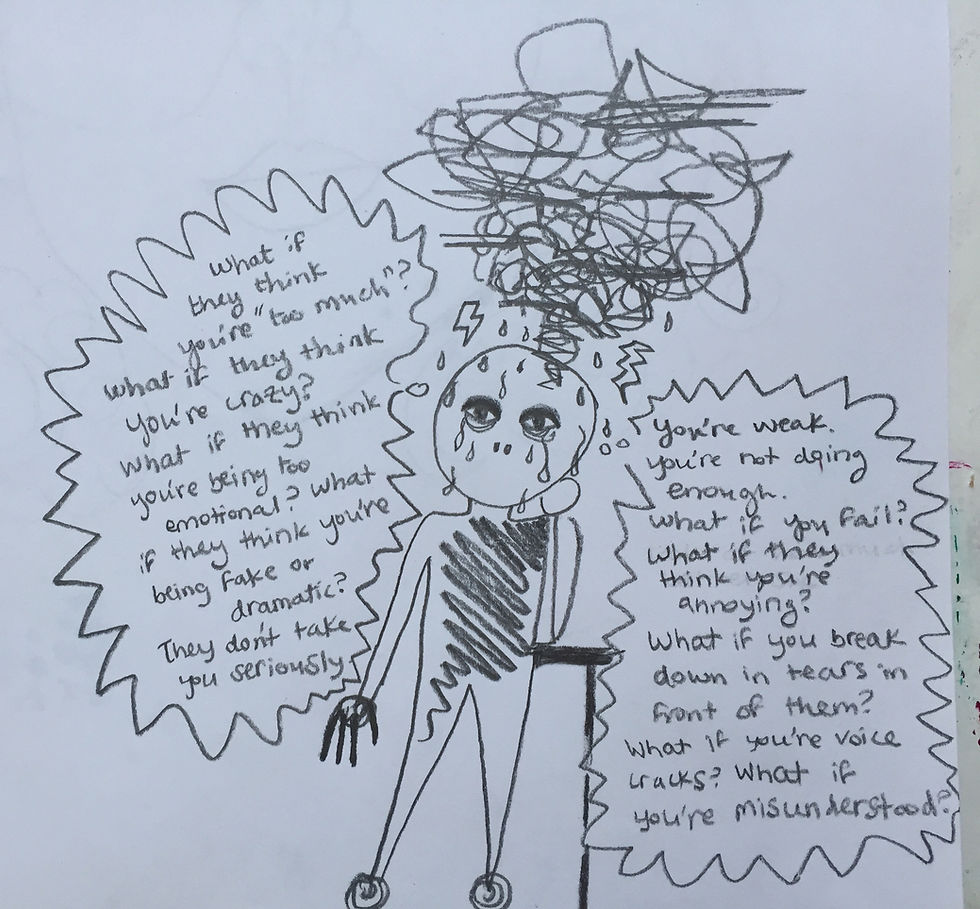 What if
they think
you're "too much"?
What if they think
you're crazy?
What if they think
you're being too
emotional? What
if they think you're
being fake or
dramatic?
They don't take
you seriously.
You're weak.
You're not doing
enough.
What if you fail?
What if they
think you're
annoying?
What if you break
down in tears in
front of them?
What if you're voice
cracks? What if
you're misunderstood?